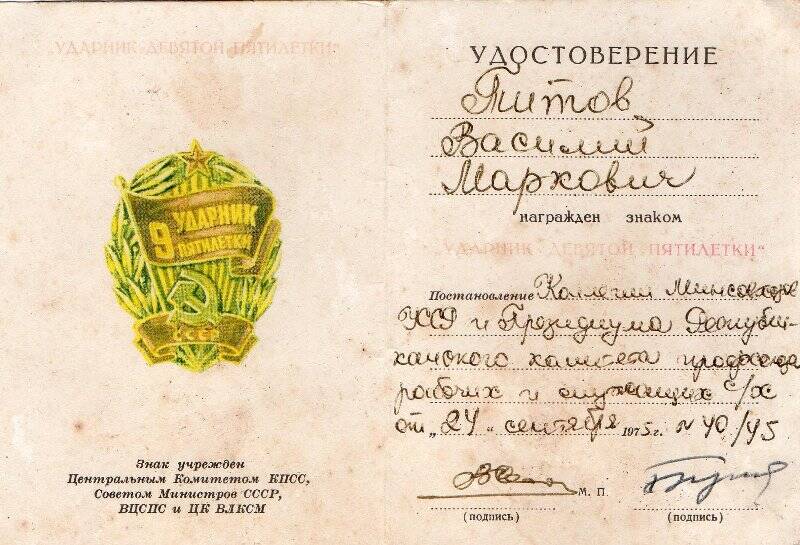 "УДАРНИК ДЕВЯТОЙ ПЯТИЛЕТКИ"
9 УДАРНИК
ПЯТИЛЕТКИ
СССР
Знак учрежден
Центральным Комитетом КПСС,
Советом Министров СССР,
ВЦСПС и ЦК ВЛКСМ
УДОСТОВЕРЕНИЕ
Титов
Василий
Маркович
награжден знаком
"УДАРНИК ДЕВЯТОЙ ПЯТИЛЕТКИ"
Постановление Коллегии Минсовхозов
УССР и Президиума Республи-
канского комитета профсоюза
рабочих и служащих с/х
от „24" сентября 1975 г. № 40/45
М. П.
(подпись) (подпись)